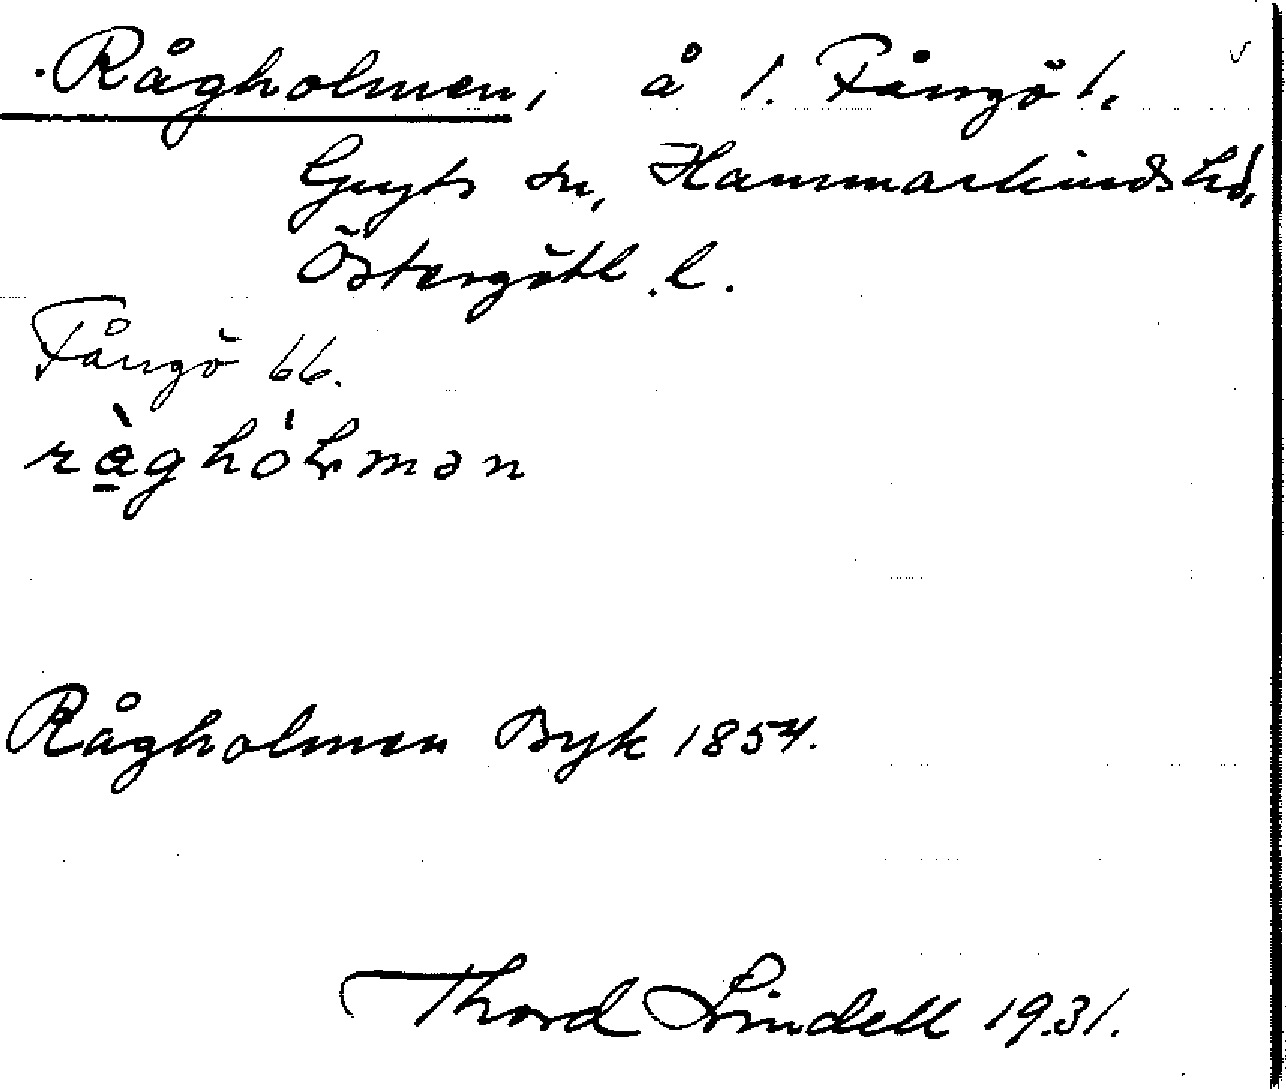 Rågholmen, å 1. Fångö 1.
Gryts sn, Hammarkinds hd,
Östergötl. l.
Fångö 66.
rågholmən
Rågholmen Byk 1854.
Thord Lindell 1931.